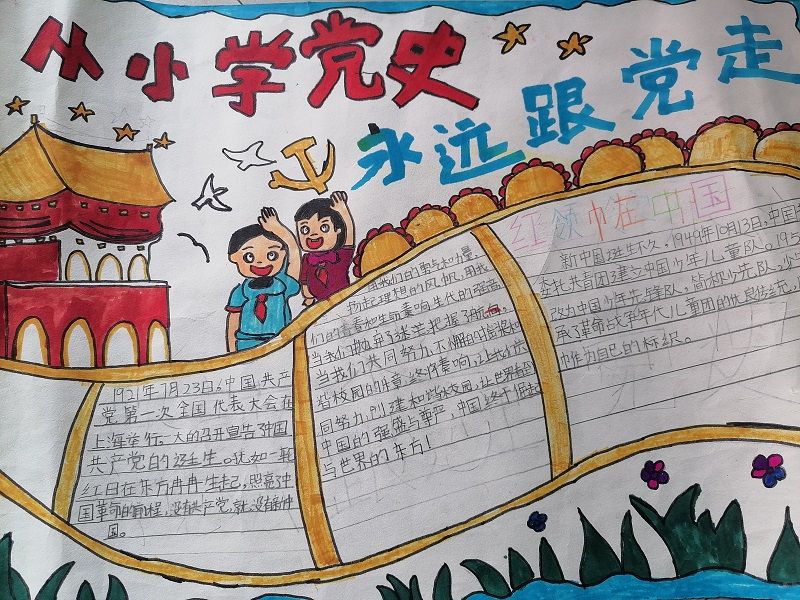 从小学党史
永远跟党走
1921年7月23日,中国共产
党第一次全国代表大会在
上海举行。大的召开宣告了中国
共产党的诞生。犹如一轮
红日在东方冉冉生起,照亮了中
国革命的前程,没有共产党,就没有新中
国。
用我们的勇气和力量,
扬起理想的风帆,用我
们的青春和生命奏响生代的强音。
当我们抛弃了迷茫把握了航向,
当我们共同努力不懈的
校园的乐章,终将奏响,让我们共
同努力,以建和谐校园,让世界
中国的强盛与尊严,中国终于
与世界的东方!
红领巾在中国
新中国诞生不久,1949年10月13日,中国
委托共青团建立中国少年儿童队。195
改为中国少年先锋队。简称少先队,少
承革命战争年代儿童团的优良传统,
巾作为自己的标织。